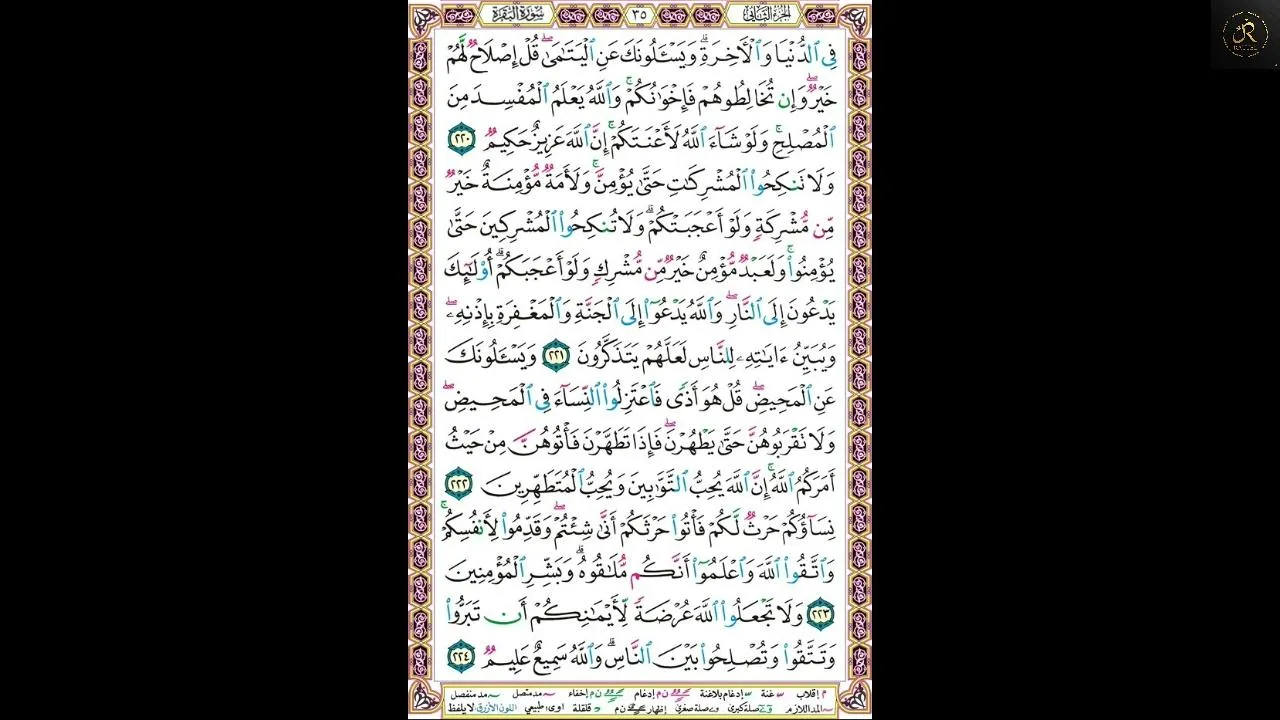 الجزء الثاني ٣٥ سورة البقرة
فِى ٱلدُّنْيَا وَٱلْـَٔاخِرَةِ ۗ وَيَسْـَٔلُونَكَ عَنِ ٱلْيَتَـٰمَىٰ ۖ قُلْ إِصْلَاحٌ لَّهُمْ
خَيْرٌ ۖ وَإِن تُخَالِطُوهُمْ فَإِخْوَٰنُكُمْ ۚ وَٱللَّهُ يَعْلَمُ ٱلْمُفْسِدَ مِنَ
ٱلْمُصْلِحِ ۚ وَلَوْ شَآءَ ٱللَّهُ لَأَعْنَتَكُمْ ۚ إِنَّ ٱللَّهَ عَزِيزٌ حَكِيمٌ ٢٢٠
وَلَا تَنكِحُوا۟ ٱلْمُشْرِكَـٰتِ حَتَّىٰ يُؤْمِنَّ ۚ وَلَأَمَةٌ مُّؤْمِنَةٌ خَيْرٌ
مِّن مُّشْرِكَةٍ وَلَوْ أَعْجَبَتْكُمْ ۗ وَلَا تُنكِحُوا۟ ٱلْمُشْرِكِينَ حَتَّىٰ
يُؤْمِنُوا۟ ۚ وَلَعَبْدٌ مُّؤْمِنٌ خَيْرٌ مِّن مُّشْرِكٍ وَلَوْ أَعْجَبَكُمْ ۗ أُو۟لَـٰٓئِكَ
يَدْعُونَ إِلَى ٱلنَّارِ ۖ وَٱللَّهُ يَدْعُوٓا۟ إِلَى ٱلْجَنَّةِ وَٱلْمَغْفِرَةِ بِإِذْنِهِۦ ۖ
وَيُبَيِّنُ ءَايَـٰتِهِۦ لِلنَّاسِ لَعَلَّهُمْ يَتَذَكَّرُونَ ٢٢١ وَيَسْـَٔلُونَكَ
عَنِ ٱلْمَحِيضِ ۖ قُلْ هُوَ أَذًى فَٱعْتَزِلُوا۟ ٱلنِّسَآءَ فِى ٱلْمَحِيضِ ۖ
وَلَا تَقْرَبُوهُنَّ حَتَّىٰ يَطْهُرْنَ ۖ فَإِذَا تَطَهَّرْنَ فَأْتُوهُنَّ مِنْ حَيْثُ
أَمَرَكُمُ ٱللَّهُ ۚ إِنَّ ٱللَّهَ يُحِبُّ ٱلتَّوَّٰبِينَ وَيُحِبُّ ٱلْمُتَطَهِّرِينَ ٢٢٢
نِسَآؤُكُمْ حَرْثٌ لَّكُمْ فَأْتُوا۟ حَرْثَكُمْ أَنَّىٰ شِئْتُمْ ۖ وَقَدِّمُوا۟ لِأَنفُسِكُمْ ۚ
وَٱتَّقُوا۟ ٱللَّهَ وَٱعْلَمُوٓا۟ أَنَّكُم مُّلَـٰقُوهُ ۗ وَبَشِّرِ ٱلْمُؤْمِنِينَ
٢٢٣ وَلَا تَجْعَلُوا۟ ٱللَّهَ عُرْضَةً لِّأَيْمَـٰنِكُمْ أَن تَبَرُّوا۟
وَتَتَّقُوا۟ وَتُصْلِحُوا۟ بَيْنَ ٱلنَّاسِ ۗ وَٱللَّهُ سَمِيعٌ عَلِيمٌ ٢٢٤
م إقلاب غنة إدغام بلاغنة ن م إدغام ن م إخفاء مد متصل مد منفصل
المد اللازم صلة كبرى صلة صغرى إظهار ن م قلقلة اوى: طبيعي اللون الأزرق: لا يلفظ